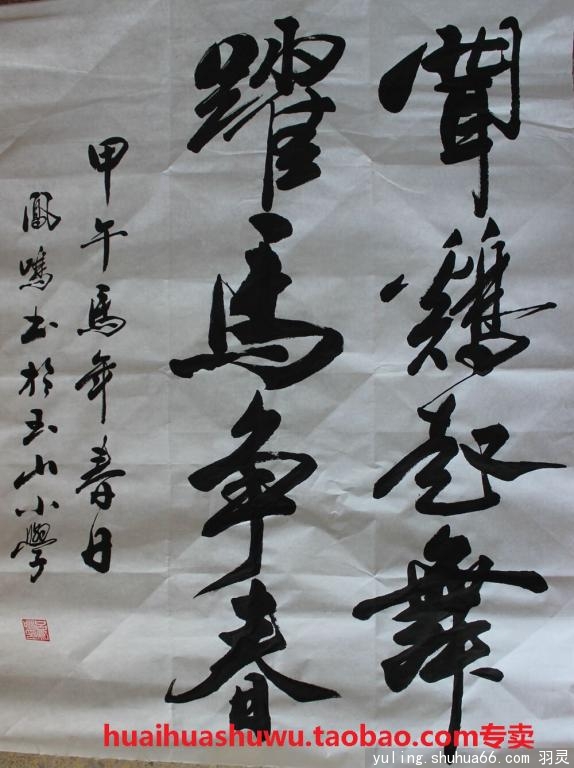 聞鷄起舞
躍馬争春
甲午馬年春日
鳳鳴书於玉山小學
huaihuashuwu.taobao.com专卖
yuling.shuhua66.com 羽灵